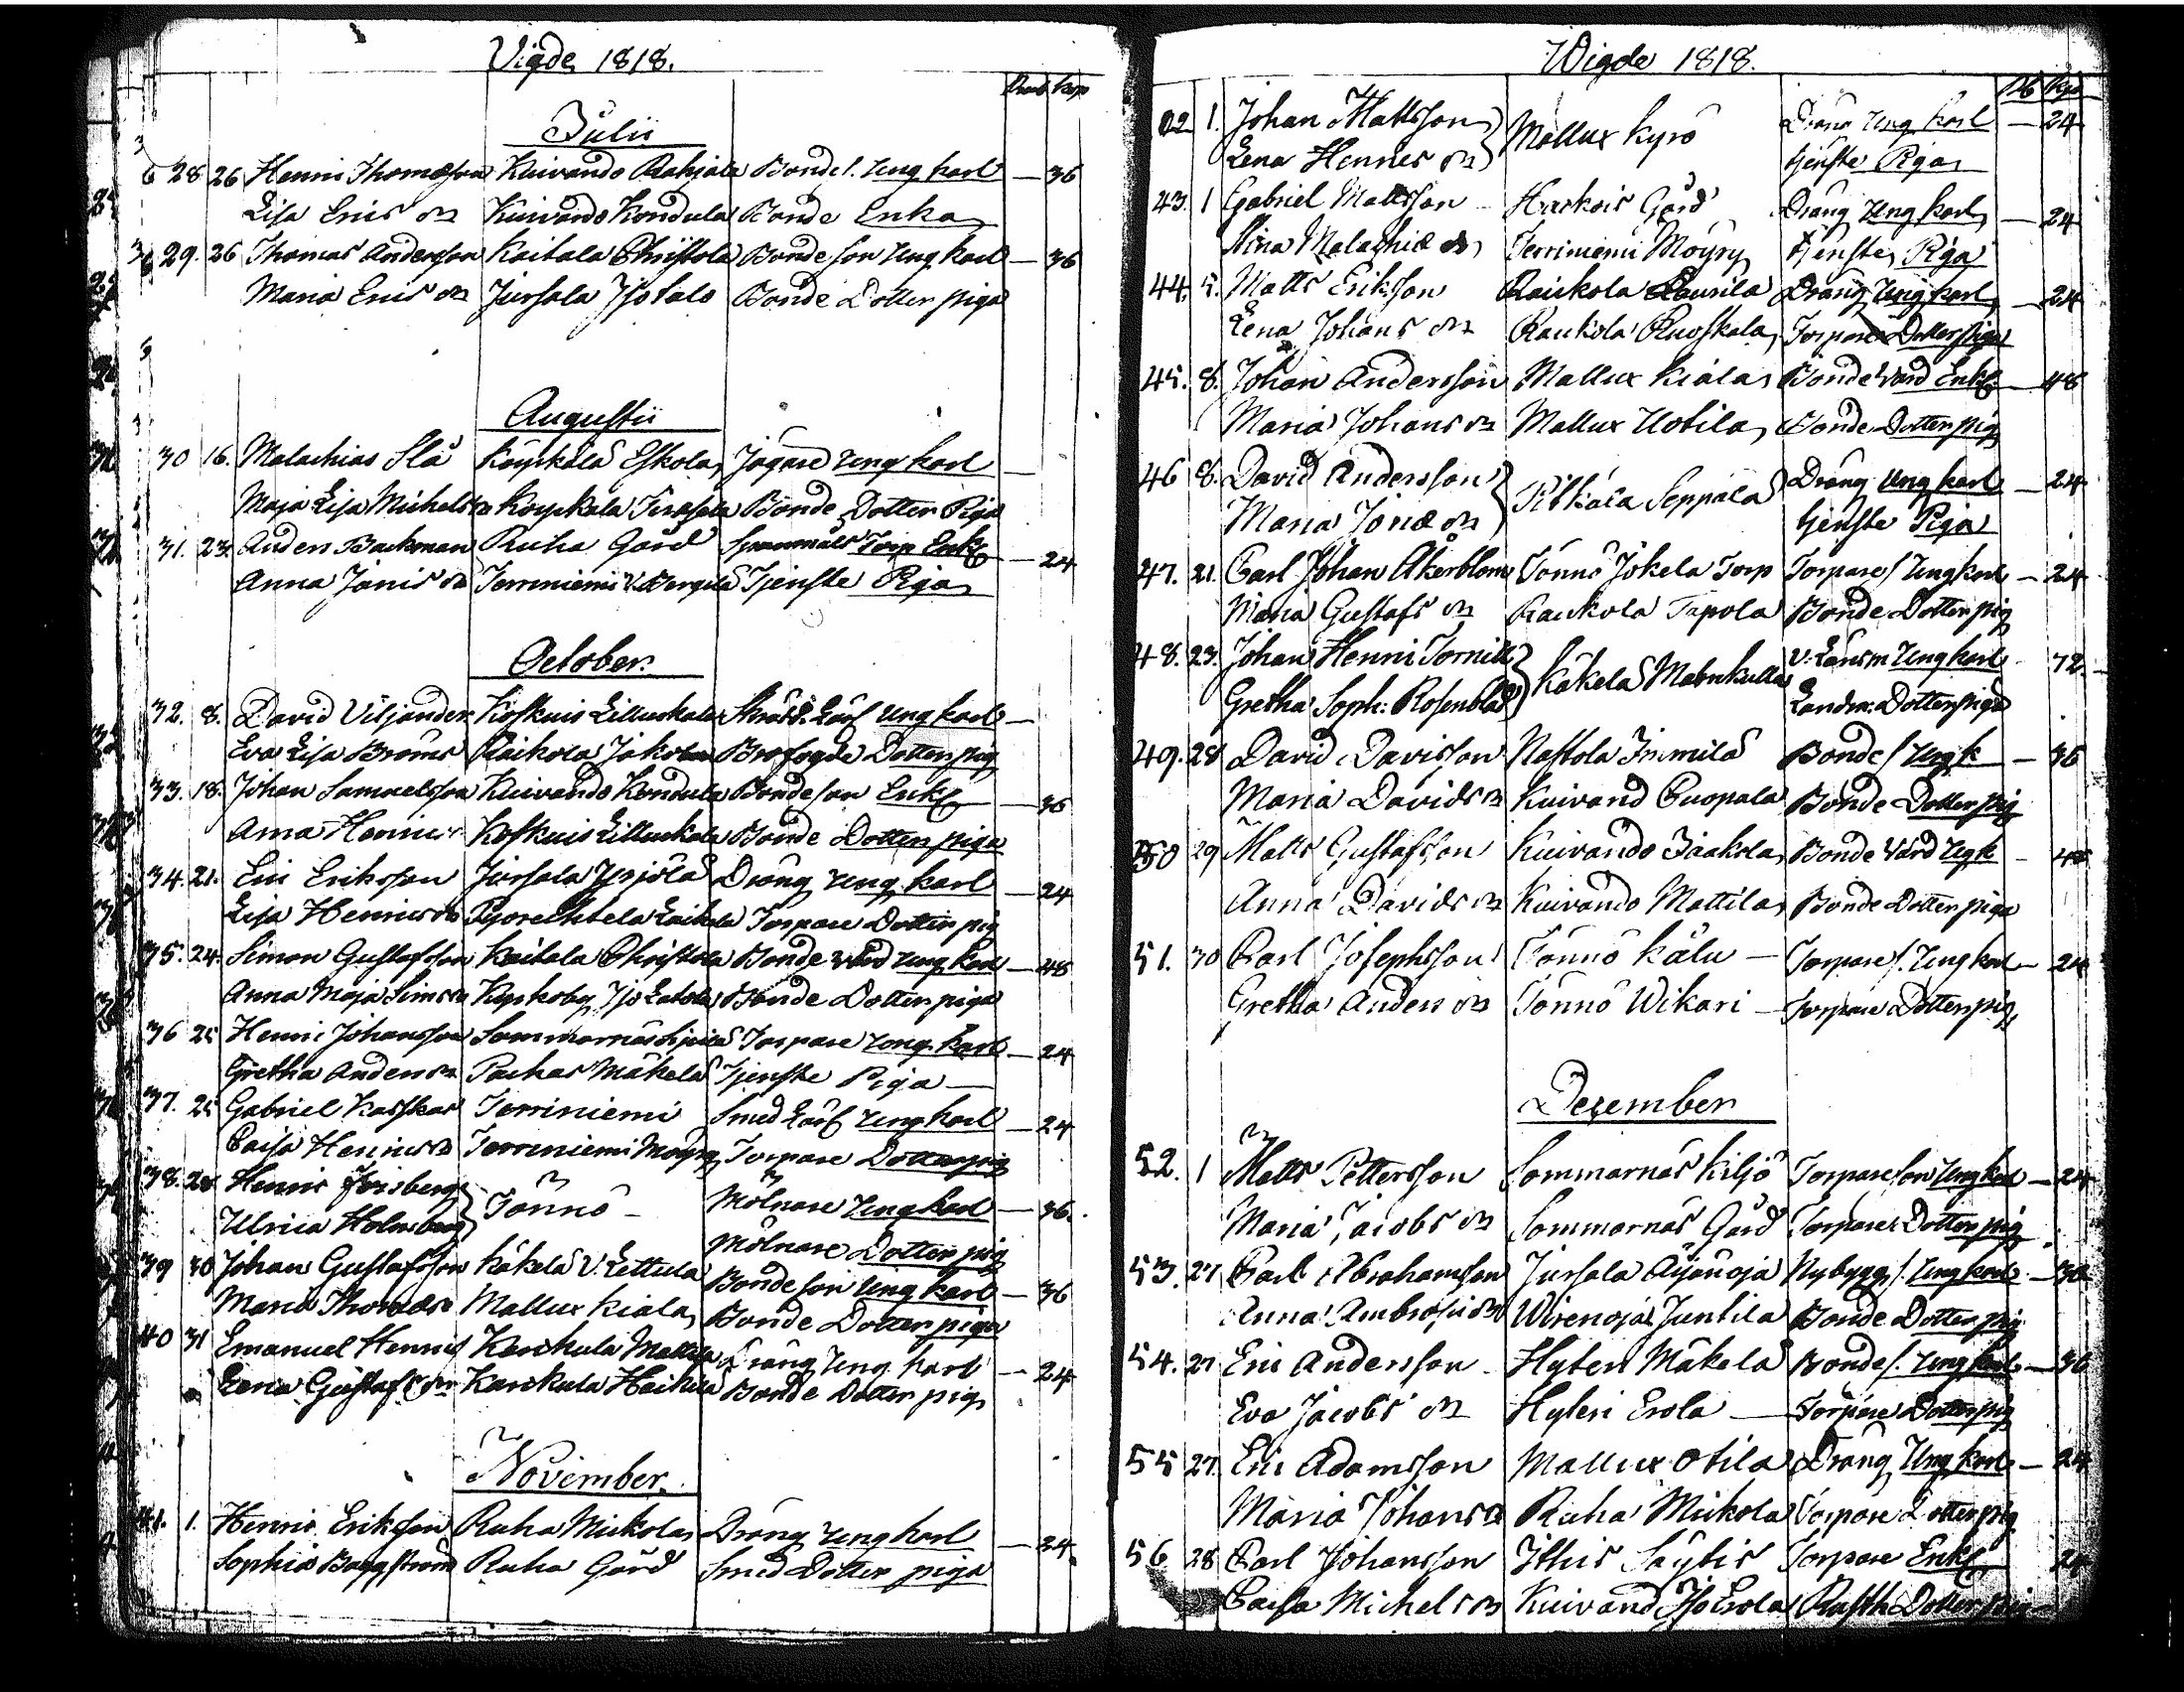 Vigde 1818.
Rub kop
Julii
28 26 Henric Thomasson Kuivando Rahjala Bonde s. ung karl — 36
Lisa Erics dr Kuivando Kondula Bonde Enka
29. 26 Thomas Andersson Kaitala Christola Bonde son ung karl — 36
Maria Erics dr Jursala Isotalo Bonde Dotter piga
Augustii
30 16. Malachias Slå Koyskälä Eskola Jägare ung karl —
Maja Lisa Michels dr Bonde Dotter Piga
31. 23. Anders Backman Ruha Gård Torp Enkl — 24
Anna Jönis dr Terriniemi Tjenste Piga
October.
32. 8. David Viljander Koskuis Lilluskala ung karl —
Eva Lisa Broms Raikola Brofogde Dotter pig
33. 18. Johan Samuelsson Kuivando Kondula Bonde son Enkl — 36
Anna Henrics Koskuis Lilluskala Bonde Dotter piga
34. 21. Eric Eriksson Jursala Yrjölä Dräng ung karl — 24
Lisa Henrics dr Torpare Dotter pig
35. 24. Simon Gustafsson Kaitala Christola Bonde värd ung karl — 48
Anna Maja Sims dr Bonde Dotter piga
36 25 Henric Johansson Sommarnäs Torpare ung karl — 24
Gretha Anders dr Paskas Mäkelä Tjenste Piga —
37. 25 Gabriel Terriniemi Smed Lärl ung karl — 24
Caisa Henrics dr Terriniemi Möyry Torpare Dotter pig
38. 28 Henric Frisberg } Tönnö — Mölnare ung karl — 36.
Ulrica Holmberg } Mölnare Dotter pig
39 30 Johan Gustafsson Käkelä V. Lettula Bonde son ung karl — 36
Maria Thomæ dr Mallux Kiala Bonde Dotter piga
40 31 Emanuel Henrics Karskula Mattila Dräng ung karl — 24
Lena Gustafs dr Karskula Heikilä Bonde Dotter pig
November.
41. 1. Henric Eriksson Ruha Mickola Dräng ung karl — 24
Sophia Baggström Ruha Gård Smed Dotter piga
Wigde 1818.
Rb kop
42 1. Johan Mattsson } Mallux Kyrö Dräng ung karl — 24
Lena Henrics dr } tjenste Piga
43. 1 Gabriel Mattsson — Harkois Gård Dräng ung karl — 24
Stina Malachiæ dr Terriniemi Möyry tjenste Piga
44. 5. Matts Eriksson Raukola Laurila Dräng ung karl — 24
Lena Johans dr Raukola Ruoskala Torpare Dotter piga
45. 8. Johan Andersson Mallux Kiala Bonde värd Enkl — 48
Maria Johans dr Mallux Uotila Bonde Dotter pig
46 8. David Andersson } Pitkälä Seppälä Dräng ung karl — 24
Maria Jonæ dr } tjenste Piga
47. 21. Carl Johan Åkerblom Tönnö Jokela Torp Torpare s. ung karl — 24
Maria Gustafs dr Raukola Tapola Bonde Dotter pig
48. 23. Johan Henric Tornell } Käkelä v. Länsm ung karl 72.
Gretha Soph: Rosenblad } Landtm: Dotter piga
49. 28 David Davisson Nastola Immilä Bonde s ung k — 36
Maria Davids dr Kuivand Cuopala Bonde Dotter pig
50 29 Matts Gustafsson Kuivando Jaakola Bonde värd ug k — 48
Anna Davids dr Kuivando Mattila Bonde Dotter piga
51. 30 Carl Josephsson Tönnö Kälu — Torpare s. ung karl — 24
Gretha Anders dr Tönnö Wikari — Torpare Dotter pig
December
52. 1 Matts Pettersson Sommarnäs Kiljö Torpare son ung karl — 24
Maria Jacobs dr Sommarnäs Gård Torpare Dotter pig
53. 27 Carl Abrahamsson Jursala Äijänoja Nybygg s. ung karl — 36
Anna Ambrosii dr Wirenoja Juntila Bonde Dotter pig
54. 27 Eric Andersson — Hyteri Mäkelä Bonde s. ung karl — 36
Eva Jacobs dr Hyteri Erola — Torpare Dotter pig
55 27. Eric Adamsson Mallux Otila Dräng ung karl — 24
Maria Johans dr Ruha Mickola Torpare Dotter pig
56. 28 Carl Johansson Ithis Säytis Torpare Enkl 24
Caisa Michels dr Kuivand Iso Erola Rusth Dotter pig